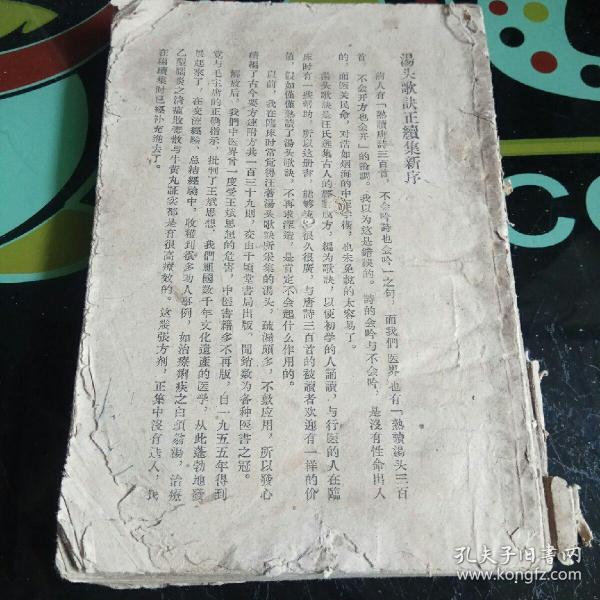 湯头歌訣正續集新序
前人有「熟讀唐詩三百首，不会吟詩也会吟」之句，而我們医界也有「熟讀湯头三百
首，不会开方也会开」的論調。我以为这是錯誤的。詩的会吟与不会吟，是沒有性命出入
的，而医关民命，对浩如烟海的中医学術，也未免說的太容易了。
湯头歌訣是汪氏选集古人的經驗良方，編为歌訣，以便初学的人誦讀，与行医的人在臨
床时有一些帮助。所以这册書，能够流傳很久很廣，与唐詩三百首的被讀者欢迎有一样的价
值，假如僅僅熟讀了湯头歌訣，不再求深造，是肯定不会起什么作用的。
以前，我在臨床时常覚得汪著湯头歌訣所采集的湯头，疏漏頗多，不敷应用，所以發心
續編了古今要方連附方共一百三十九則，交由千頃堂書局出版，開銷数为各种医書之冠。
解放后，我們中医界曾一度受王斌思想的危害，中医書籍多不再版，自一九五五年得到
党与毛主席的正确指示，批判了王斌思想，我們祖國数千年文化遺產的医学，从此蓬勃地發
展起來了，在交流經驗、总結經驗中，收穫到很多动人事例，如治療痢疾之白頭翁湯，治療
乙型腦炎之清瘟敗毒散与牛黄丸証实都是有很高療效的。这幾張方剂，正集中沒有选入，我
在編續集时已經补充進去了。
孔夫子旧书网
www.kongfz.com